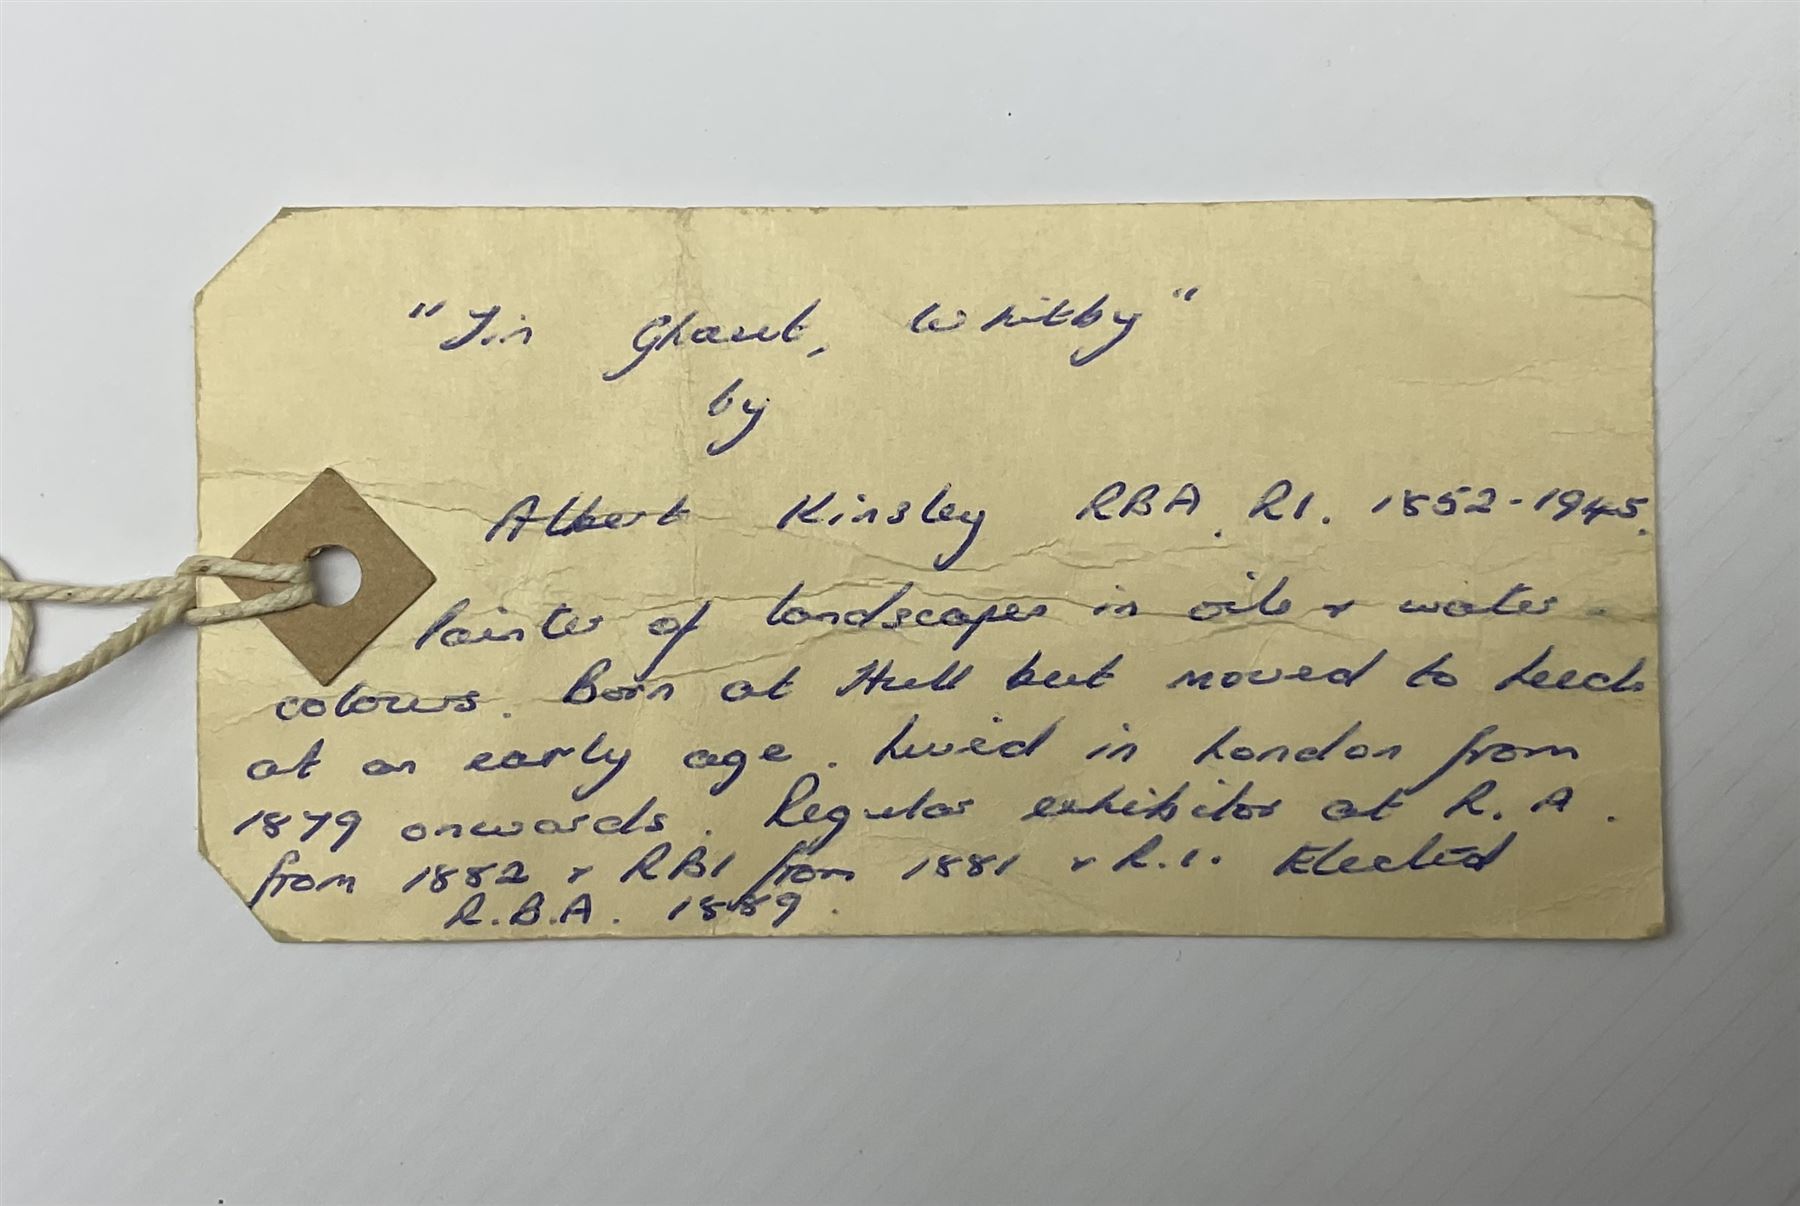 "Tin Ghaut, Whitby"
by
Albert Kinsley RBA. RI. 1852-1945.
Painter of landscapes in oils & water-
colours. Born at Hull but moved to Leeds
at an early age. Lived in London from
1879 onwards. Regular exhibitor at R.A.
from 1882 & RBI from 1881 & R.I. Elected
R.B.A. 1889.